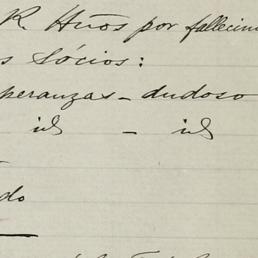 R Hnos por fallecim
s Sócios:
peranzas - dudoso
id - id
do